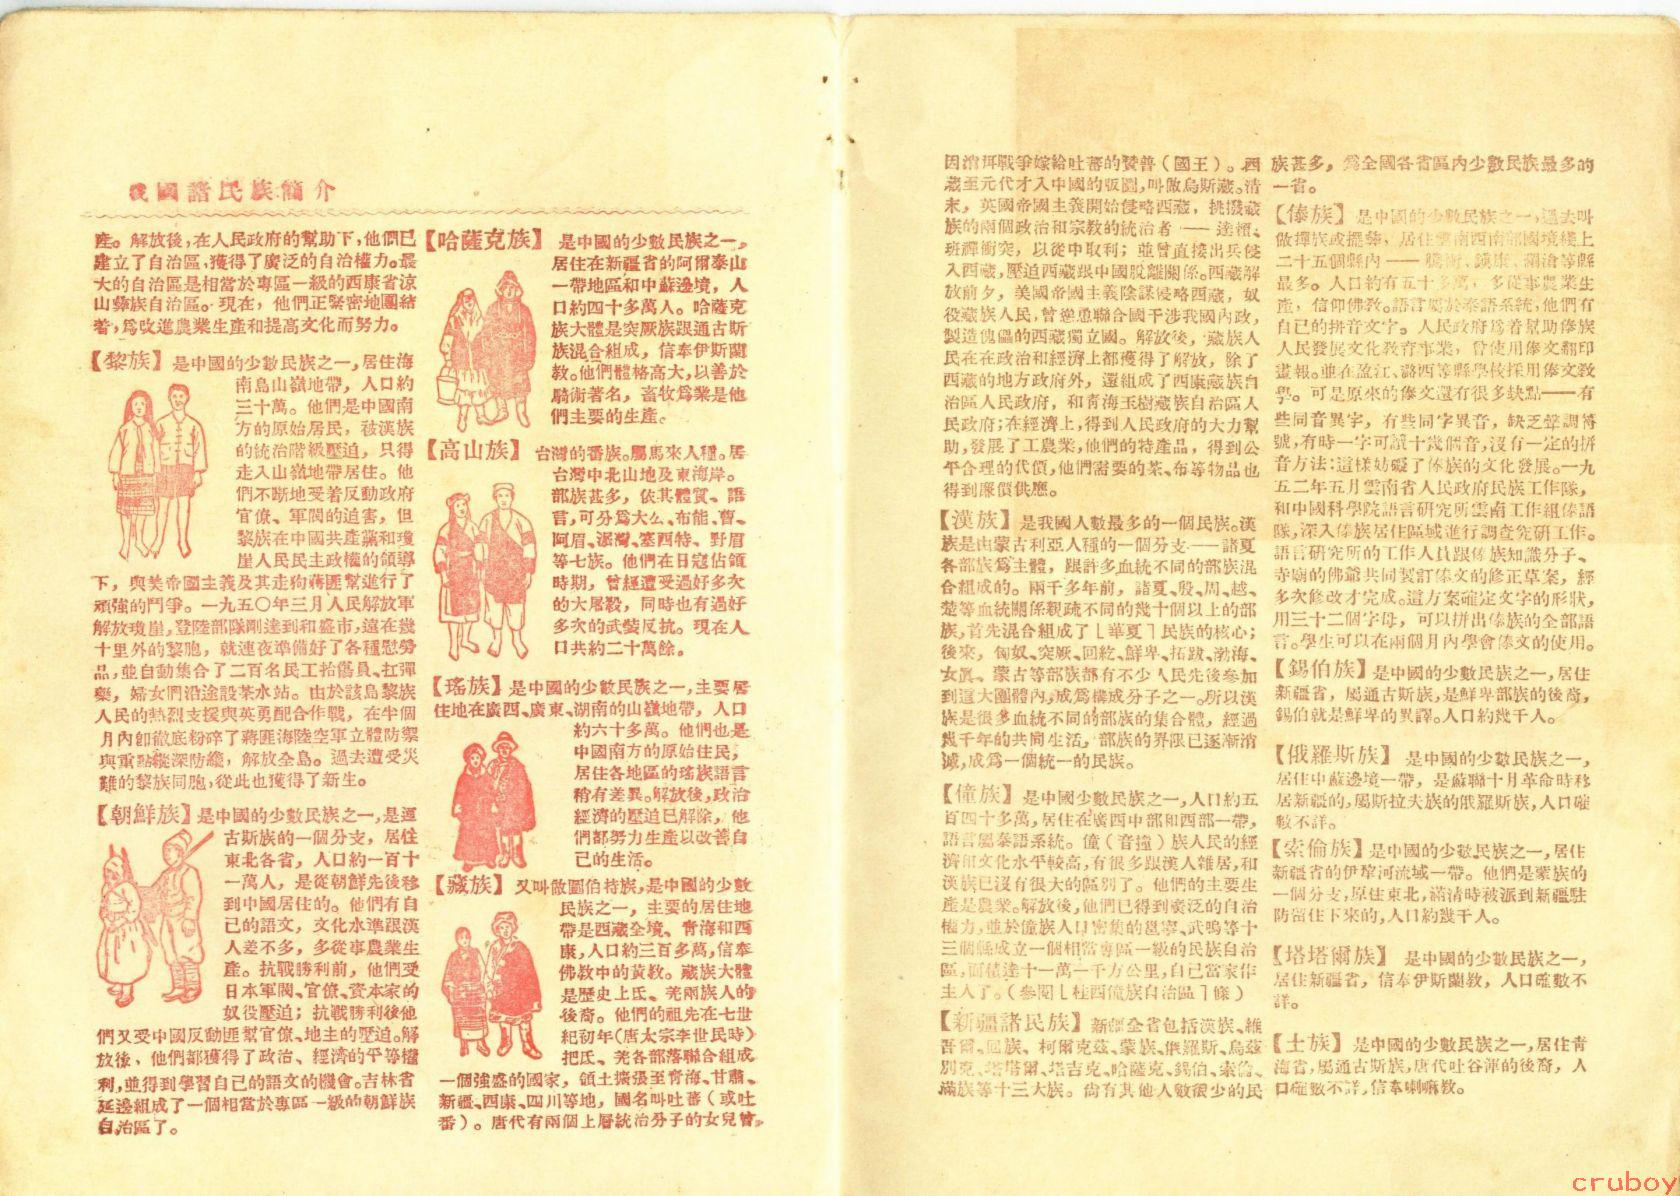 我國諸民族簡介
產。解放後,在人民政府的幫助下,他們已
建立了自治區,獲得了廣泛的自治權力。最
大的自治區是相當於專區一級的西康省涼
山彝族自治區。現在,他們正緊密地團結
着,爲改進農業生產和提高文化而努力。
【黎族】是中國的少數民族之一,居住海
南島山嶺地帶,人口約
三十萬。他們是中國南
方的原始居民,被漢族
的統治階級壓迫,只得
走入山嶺地帶居住。他
們不斷地受着反動政府
官僚、軍閥的迫害,但
黎族在中國共產黨和瓊
崖人民民主政權的領導
下,與美帝國主義及其走狗蔣匪幫進行了
頑強的鬥爭。一九五〇年三月人民解放軍
解放瓊崖,登陸部隊剛達到和盛市,遠在幾
十里外的黎胞,就連夜準備好了各種慰勞
品,並自動集合了二百名民工抬傷員、扛彈
藥,婦女們沿途設茶水站。由於該島黎族
人民的熱烈支援與英勇配合作戰,在半個
月內卽徹底粉碎了蔣匪海陸空軍立體防禦
與重點縱深防禦,解放全島。過去遭受災
難的黎族同胞,從此也獲得了新生。
【朝鮮族】是中國的少數民族之一,是通
古斯族的一個分支,居住
東北各省,人口約一百十
一萬人,是從朝鮮先後移
到中國居住的。他們有自
已的語文,文化水準跟漢
人差不多,多從事農業生
產。抗戰勝利前,他們受
日本軍閥、官僚、資本家的
奴役壓迫;抗戰勝利後他
們又受中國反動匪幫官僚、地主的壓迫。解
放後,他們都獲得了政治、經濟的平等權
利,並得到學習自己的語文的機會。吉林省
延邊組成了一個相當於專區一級的朝鮮族
自治區了。
【哈薩克族】是中國的少數民族之一,
居住在新疆省的阿爾泰山
一帶地區和中蘇邊境,人
口約四十多萬人。哈薩克
族大體是突厥族跟通古斯
族混合組成,信奉伊斯蘭
教。他們體格高大,以善於
騎術著名,畜牧爲業是他
們主要的生產。
【高山族】台灣的番族。屬馬來人種。居
台灣中北山地及東海岸。
部族甚多,依其體質、語
言,可分爲大么、布能、曹、
阿眉、派灣、塞西特、野眉
等七族。他們在日寇佔領
時期,曾經遭受過好多次
的大屠殺,同時也有過好
多次的武裝反抗。現在人
口共約二十萬餘。
【瑤族】是中國的少數民族之一,主要居
住地在廣西、廣東、湖南的山嶺地帶,人口
約六十多萬。他們也是
中國南方的原始住民,
居住各地區的瑤族語言
稍有差異。解放後,政治
經濟的壓迫已解除,他
們都努力生產以改善自
己的生活。
【藏族】又叫做圖伯特族,是中國的少數
民族之一,主要的居住地
帶是西藏全境、青海和西
康,人口約三百多萬,信奉
佛教中的黃教。藏族大體
是歷史上氐、羌兩族人的
後裔。他們的祖先在七世
紀初年(唐太宗李世民時)
把氐、羌各部落聯合組成
一個強盛的國家,領土擴張至青海、甘肅、
新疆、西康、四川等地,國名叫吐蕃(或吐
番)。唐代有兩個上層統治分子的女兒曾
因消弭戰爭嫁給吐蕃的贊普(國王)。西
藏至元代才入中國的版圖,叫做烏斯藏。清
末,英國帝國主義開始侵略西藏,挑撥藏
族的兩個政治和宗教的統治者——達賴、
班禪衝突,以從中取利;並曾直接出兵侵
入西藏,壓迫西藏跟中國脫離關係。西藏解
放前夕,美國帝國主義陰謀侵略西藏,奴
役藏族人民,曾慫恿聯合國干涉我國內政,
製造傀儡的西藏獨立國。解放後,藏族人
民在在政治和經濟上都獲得了解放,除了
西藏的地方政府外,還組成了西康藏族自
治區人民政府,和青海玉樹藏族自治區人
民政府;在經濟上,得到人民政府的大力幫
助,發展了工農業,他們的特產品,得到公
平合理的代價,他們需要的茶、布等物品也
得到廉價供應。
【漢族】是我國人數最多的一個民族。漢
族是由蒙古利亞人種的一個分支——諸夏
各部族爲主體,跟許多血統不同的部族混
合組成的。兩千多年前,諸夏、殷、周、越、
楚等血統關係親疏不同的幾十個以上的部
族,首先混合組成了「華夏」民族的核心;
後來,匈奴、突厥、回紇、鮮卑、拓跋、渤海、
女眞、蒙古等部族都有不少人民先後參加
到這大團體內,成爲構成分子之一。所以漢
族是很多血統不同的部族的集合體,經過
幾千年的共同生活,部族的界限已逐漸消
滅,成爲一個統一的民族。
【僮族】是中國少數民族之一,人口約五
百四十多萬,居住在廣西中部和西部一帶,
語言屬泰語系統。僮(音撞)族人民的經
濟和文化水平較高,有很多跟漢人雜居,和
漢族已沒有很大的區別了。他們的主要生
產是農業。解放後,他們已得到廣泛的自治
權力,並於僮族人口密集的邕寧、武鳴等十
三個縣成立一個相當專區一級的民族自治
區,面積達十一萬一千方公里,自已當家作
主人了。(參閱「桂西僮族自治區」條)
【新疆諸民族】新疆全省包括漢族、維
吾爾、回族、柯爾克茲、蒙族、俄羅斯、烏茲
別克、塔塔爾、塔吉克、哈薩克、錫伯、索倫、
滿族等十三大族。尙有其他人數很少的民
族甚多,爲全國各省區內少數民族最多的
一省。
【傣族】是中國的少數民族之一,過去叫
做撣族或擺彝,居住雲南西南部國境綫上
二十五個縣內——騰衝、鎮康、瀾滄等縣
最多。人口約有五十多萬,多從事農業生
產,信仰佛教。語言屬於泰語系統,他們有
自己的拼音文字。人民政府爲着幫助傣族
人民發展文化教育事業,曾使用傣文翻印
畫報。並在盈江、潞西等縣學校採用傣文教
學。可是原來的傣文還有很多缺點——有
些同音異字,有些同字異音,缺乏聲調符
號,有時一字可讀十幾個音,沒有一定的拼
音方法:這樣妨礙了傣族的文化發展。一九
五二年五月雲南省人民政府民族工作隊,
和中國科學院語言研究所雲南工作組傣語
隊,深入傣族居住區域進行調查究研工作。
語言研究所的工作人員跟傣族知識分子、
寺廟的佛爺共同製訂傣文的修正草案,經
多次修改才完成。這方案確定文字的形狀,
用三十二個字母,可以拼出傣族的全部語
言。學生可以在兩個月內學會傣文的使用。
【錫伯族】是中國的少數民族之一,居住
新疆省,屬通古斯族,是鮮卑部族的後裔,
錫伯就是鮮卑的異譯。人口約幾千人。
【俄羅斯族】是中國的少數民族之一,
居住中蘇邊境一帶,是蘇聯十月革命時移
居新疆的,屬斯拉夫族的俄羅斯族,人口確
數不詳。
【索倫族】是中國的少數民族之一,居住
新疆省的伊犂河流域一帶。他們是蒙族的
一個分支,原住東北,滿清時被派到新疆駐
防留住下來的,人口約幾千人。
【塔塔爾族】是中國的少數民族之一,
居住新疆省,信奉伊斯蘭教,人口確數不
詳。
【土族】是中國的少數民族之一,居住青
海省,屬通古斯族,唐代吐谷渾的後裔,人
口確數不詳,信奉喇嘛教。
cruboy